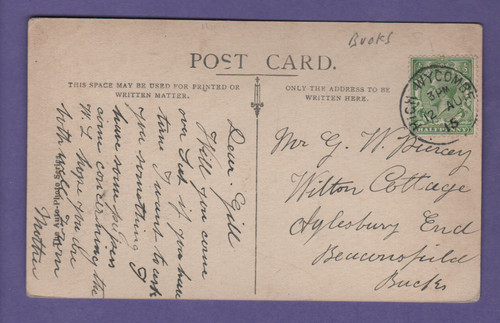 Bucks
POST CARD.
THIS SPACE MAY BE USED FOR PRINTED OR
WRITTEN MATTER.
ONLY THE ADDRESS TO BE
WRITTEN HERE.
HIGH WYCOMBE
3 PM
12 AU
15
HALFPENNY
Dear Gill
Will you come
over Sat if you have
time I want to ask
you something I
have some papers
come concerning the
W. L hope you are
well
with love from
Mother
Mr G. W.
Wilton Cottage
Aylesbury End
Beaconsfield
Bucks